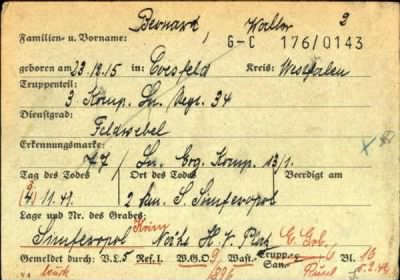 Bernard, Walter 2
Familien- u. Vorname:
G-C 176/0143
geboren am 23.12.15 in Coesfeld Kreis: Westfalen
Truppenteil:
3 Komp. Ln. Regt. 34
Dienstgrad:
Feldwebel
Erkennungsmarke:
77 Ln. Erg. Komp. 13/1.
Tag des Todes Ort des Todes Beerdigt am
11.41. 2 San. S. Simferopol
Lage und Nr. des Grabes: Krim
Simferopol Nähe H. V. Platz E. Grb.
Gemeldet durch: V.L. 5 Ref. I. W.G.O. 9 Wast. Trupp. 6 Bl. 16
San.